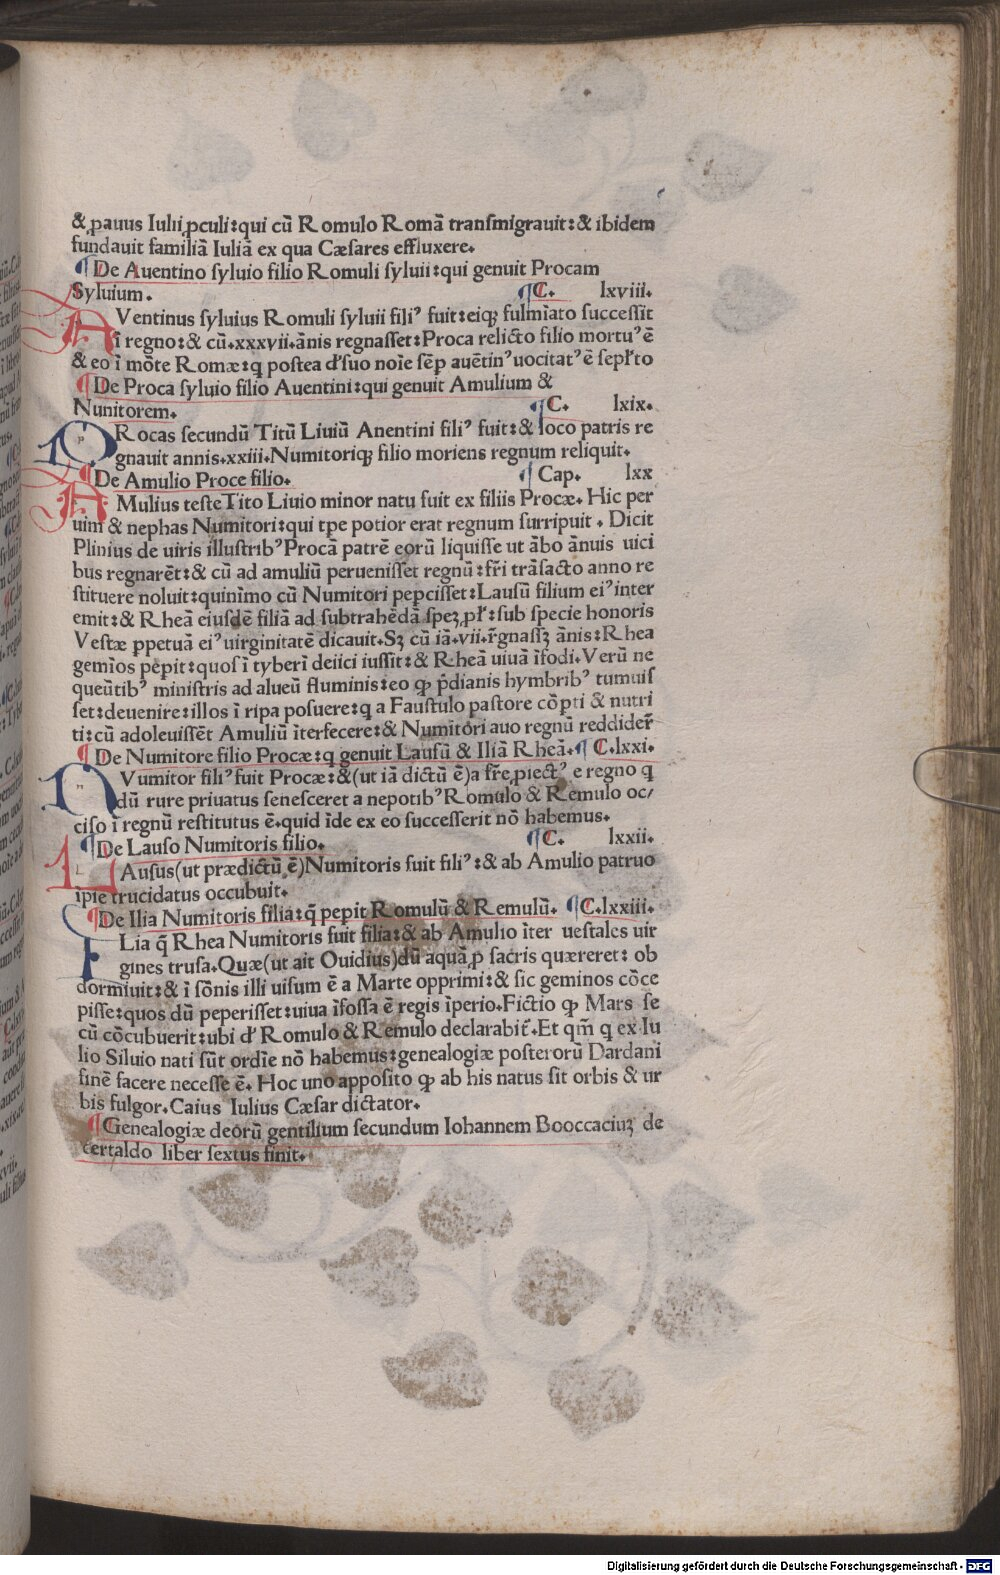 & ꝓauus Iulii ꝓculi:qui cū Romulo Romā tranſmigrauit:& ibidem
fundauit familiā Iuliā ex qua Cæſares effluxere.
¶De Auentino ſyluio filio Romuli ſyluii:qui genuit Procam
Syluium. ¶C. lxviii.
AVentinus ſyluius Romuli ſyluii fili⁹ fuit:eiq; fulmīato ſucceſſit
ī regno:& cū.xxxvii.ānis regnaſſet:Proca relicto filio mortu⁹ ē
& eo ī mōte Romæ:q poſtea dſ̓uo noīe ſēp auētin⁹ uocitat⁹ ē ſepl̓to
¶De Proca ſyluio filio Auentini:qui genuit Amulium &
Nunitorem. ¶C. lxix.
PRocas ſecundū Titū Liuiū Anentini fili⁹ fuit:& loco patris re
gnauit annis.xxiii.Numitoriq; filio moriens regnum reliquit.
¶De Amulio Proce filio. ¶Cap. lxx
AMulius teſte Tito Liuio minor natu fuit ex filiis Procæ. Hic per
uim & nephas Numitori:qui tpe potior erat regnum ſurripuit . Dicit
Plinius de uiris illuſtrib⁹ Procā patrē eorū liquiſſe ut ābo ānuis uici
bus regnarēt:& cū ad amuliū perueniſſet regnū:fr̄i trāſacto anno re
ſtituere noluit:quinimo cū Numitori pepciſſet:Lauſū filium ei⁹ inter
emit:& Rheā eiuſdē filiā ad ſubtrahēdā ſpeꝫ pl̓:ſub ſpecie honoris
Veſtæ ppetuā ei⁹ uirginitatē dicauit.Sꝫ cū iā.vii.r̄gnaſſꝫ ānis:Rhea
gemīos pepit:quoſ ī tyberī deiici iuſſit:& Rheā uiuā īfodi.Verū ne
queūtib⁹ miniſtris ad alueū fluminis:eo ꝙ p̄dianis hymbrib⁹ tumuiſ
ſet:deuenire:illos ī ripa poſuere:q a Fauſtulo paſtore cōpti & nutri
ti:cū adoleuiſſēt Amuliū īterfecere:& Numitori auo regnū reddider̄
¶De Numitore filio Procæ:q genuit Lauſū & Iliā Rheā.¶C.lxxi.
NVumitor fili⁹ fuit Procæ:&(ut iā dictū ē)a fr̄e ꝓiect⁹ e regno q
dū rure priuatus ſeneſceret a nepotib⁹ Romulo & Remulo oc/
ciſo ī regnū reſtitutus ē.quid īde ex eo ſucceſſerit nō habemus.
¶De Lauſo Numitoris filio. ¶C. lxxii.
LAuſus(ut prædictū ē)Numitoris fuit fili⁹:& ab Amulio patruo
īpie trucidatus occubuit.
¶De Ilia Numitoris filia:q̄ pepit Romulū & Remulū. ¶C.lxxiii.
ILia q̄ Rhea Numitoris fuit filia:& ab Amulio īter ueſtales uir
gines truſa.Quæ(ut ait Ouidius)dū aquā ꝓ ſacris quæreret: ob
dormiuit:& ī ſōnis illi uiſum ē a Marte opprimi:& ſic geminos cōce
piſſe:quos dū peperiſſet:uiua īfoſſa ē regis īperio.Fictio ꝙ Mars ſe
cū cōcubuerit:ubi d̓ Romulo & Remulo declarabit̄.Et qm̄ q ex Iu
lio Siluio nati ſūt ordīe nō habemus:genealogiæ poſterorū Dardani
finē facere neceſſe ē. Hoc uno appoſito ꝙ ab his natus ſit orbis & ur
bis fulgor.Caius Iulius Cæſar dictator.
¶Genealogiæ deorū gentilium ſecundum Iohannem Booccaciuꝫ de
certaldo liber ſextus finit.
Digitalisierung gefördert durch die Deutsche Forschungsgemeinschaft - DFG